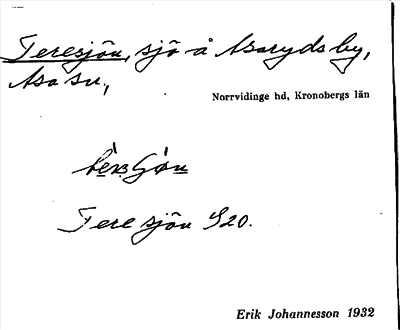 Teresjön, sjö å Asaryds by,
Asa sn,
Norrvidinge hd, Kronobergs län
Teresjön G20.
Erik Johannesson 1932